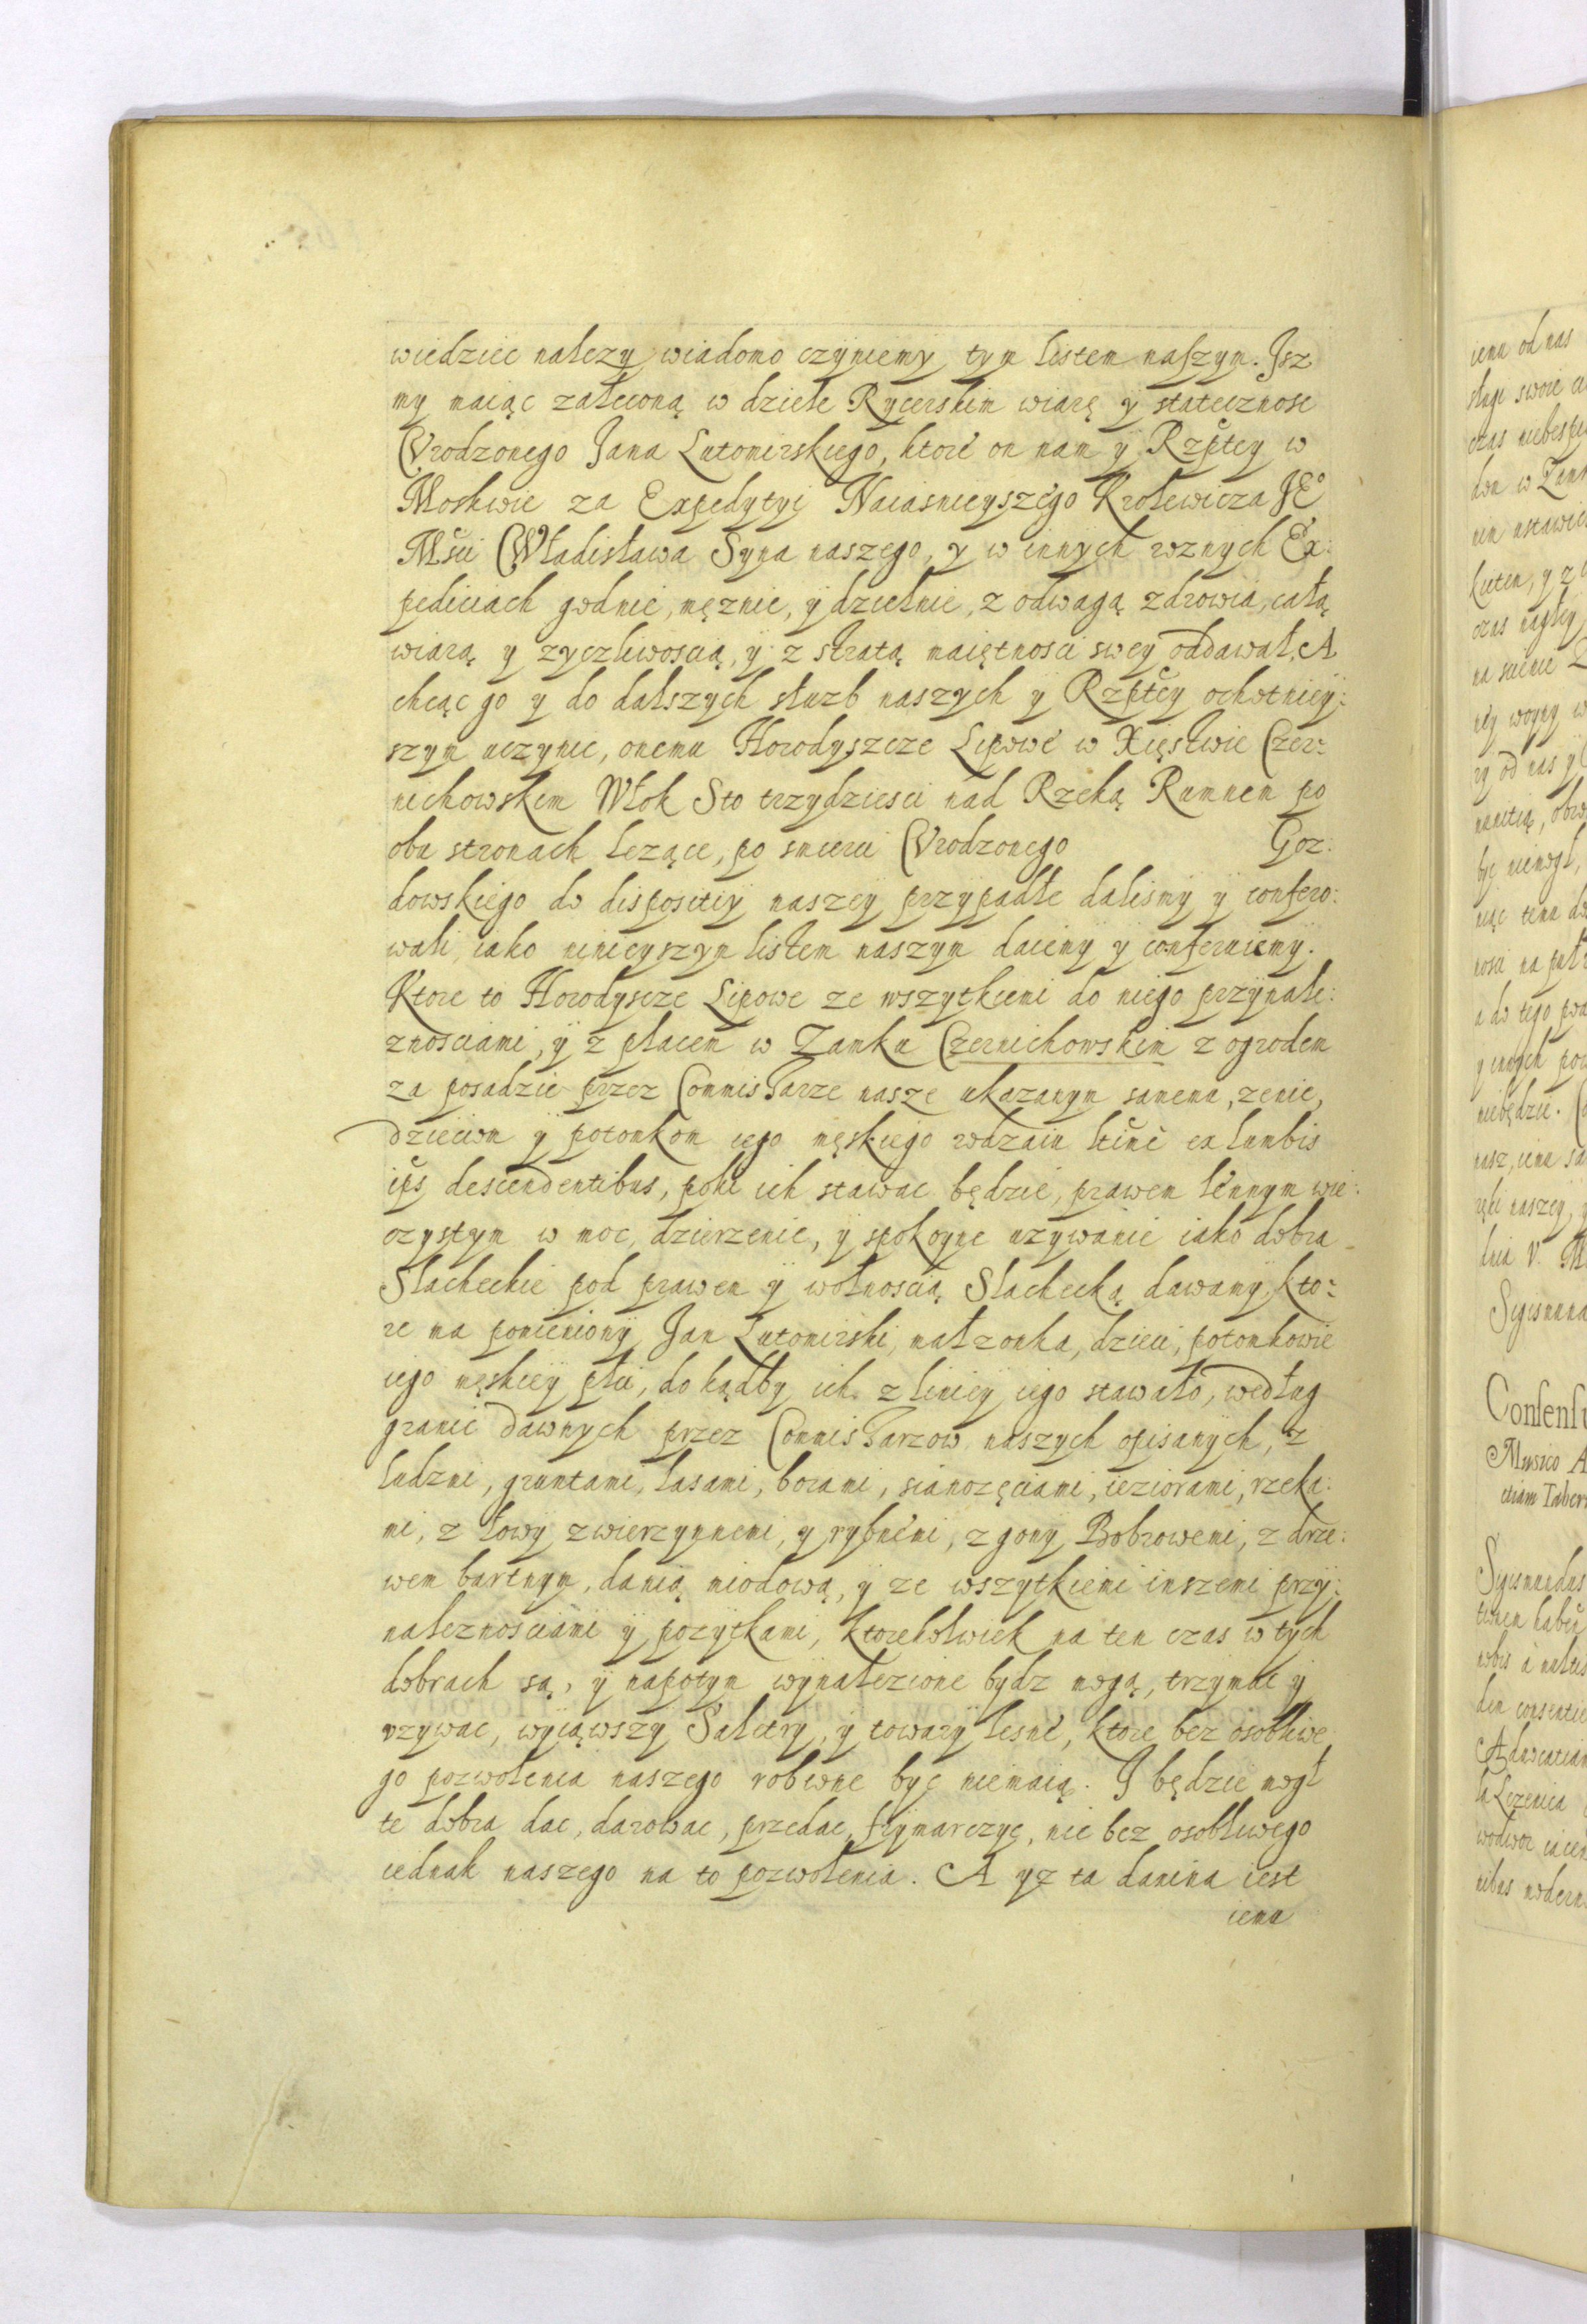 wiedziec nalezy wiadomo czyniemy tym listem naszym. Jsz
my maiąc zaleconą w dziele Rycerskim wiarę y statecznosc
Vrodzonego Jana Lutomirskiego, ktore on nam y Rzptey w
Moskwie za Expedytyi Naiasnieyszego Krolewicza JEo
Msci Władisława Syna naszego, y w innych roznych Ex:
pediciach godnie, męznie, y dzielnie, z odwagą zdrowia, całą
wiarą y zyczliwoscią, y z stratą maiętnosci swey oddawał. A
chcąc go y do dalszych słuzb naszych y Rzptey ochotniey:
szym uczynic, onemu Horodyszcze Lipowe w Xięstwie Czer:
nichowskim Włok Sto trzydziesci nad Rzeką Rumnem po
obu stronach lezące, po smierci Vrodzonego Goz:
dowskiego do dispositiy naszey przypadłe dalismy y confero:
wali, iako ninieyszym listem naszym daiemy y conferuiemy.
Ktore to Horodyscze Lipowe ze wszytkiemi do niego przynale:
znosciami, y z placem w Zamku Czernichowskim z ogrodem
za posadzie przez Commissarze nasze ukazanym samemu, zenie,
dzieciom y potomkom iego męskiego rodzaiu ltime ex lumbis
ips descendentibus, poki ich stawac będzie, prawem lennym wie:
czystym w moc, dzierzenie, y spokoyne uzywanie iako dobra
Slacheckie pod prawem y wolnoscią Slachecką dawamy, kto:
re ma pomieniony Jan Lutomirski, małzonka, dzieci, potomkowie
iego męskiey płci, do kądby ich z liniey iego stawało, według
granic dawnych przez Commissarzow naszych opisanych, z
ludzmi, gruntami, lasami, borami, sianozęciami, ieziorami, rzeka:
mi, z łowy zwierzynnemi, y rybnemi, z gony Bobrowemi, z drze:
wem bartnym, danią miodową, y ze wszytkiemi inszemi przy:
naleznosciami y pozytkami, ktorekolwiek na ten czas w tych
dobrach są, y napotym wynalezione bydz mogą, trzymac y
vzywac, wyiąwszy Saletry, y towary lesne, ktore bez osobliwe
go pozwolenia naszego robione byc niemaią. J będzie mogł
te dobra dac, darowac, przedac, frymarczyc, nie bez osobliwego
iednak naszego na to pozwolenia. A yz ta danina iest
iemu